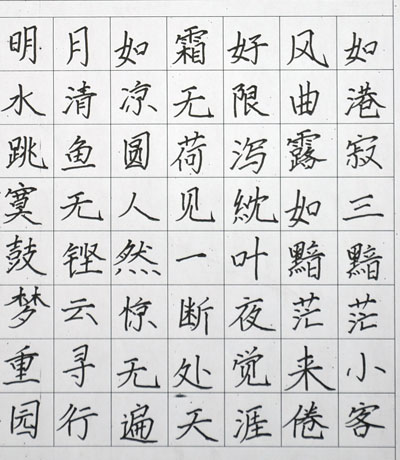 明月如霜好风如
水清凉无限曲港
跳鱼圆荷泻露寂
寞无人见紞如三
鼓铿然一叶黯黯
梦云惊断夜茫茫
重寻无处觉来小
园行遍天涯倦客